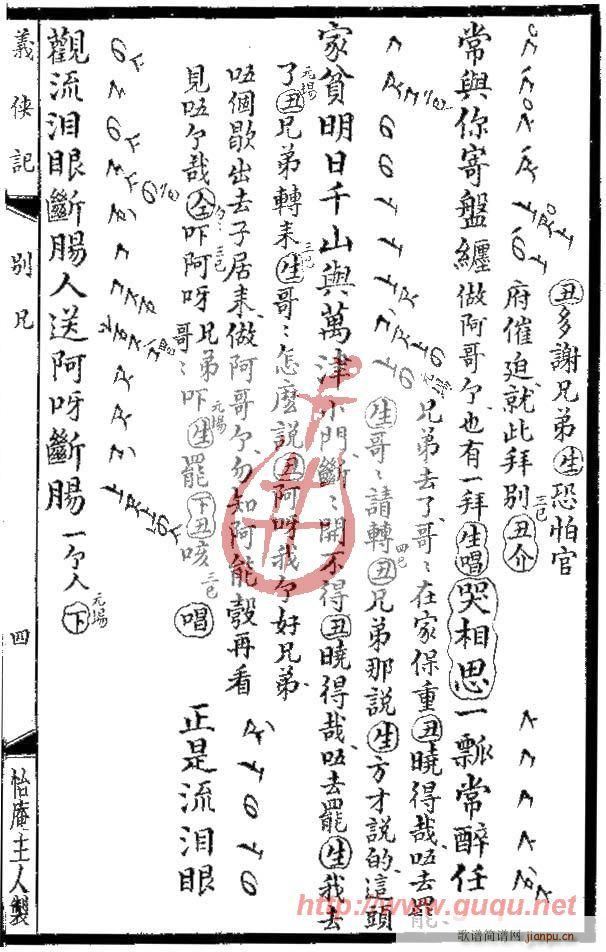 丑多謝兄弟生恐怕官
府催迫就此拜别丑介
常與你寄盤纏做阿哥个也有一拜生唱哭相思一瓢常醉任
兄弟去了哥〻在家保重丑曉得哉唔去罷
生哥〻請轉丑兄弟那說生方才說的這頭
家貧明日千山與萬津小門斷〻開不得丑曉得哉唔去罷生我去
了丑兄弟轉来生哥〻怎麽說丑阿呀我个好兄弟
唔個歇出去子居来做阿哥个勿知阿能彀再看
見唔个哉仝吓阿呀兄弟哥〻吓生罷下丑咳唱正是流泪眼
觀流泪眼斷腸人送阿呀斷腸一个人下
義俠記
别兄
四
怡庵主人製
http://www.guqu.net
歌谱简谱网
jianpu.cn